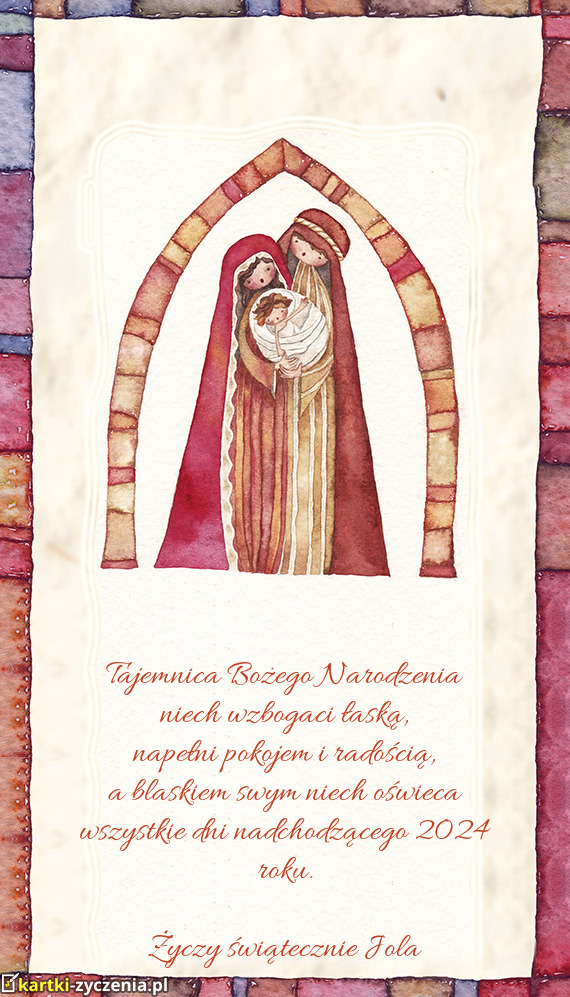 Tajemnica Bożego Narodzenia
niech wzbogaci łaską,
napełni pokojem i radością,
a blaskiem swym niech oświeca
wszystkie dni nadchodzącego 2024
roku.
Życzy świątecznie Jola
kartki-zyczenia.pl